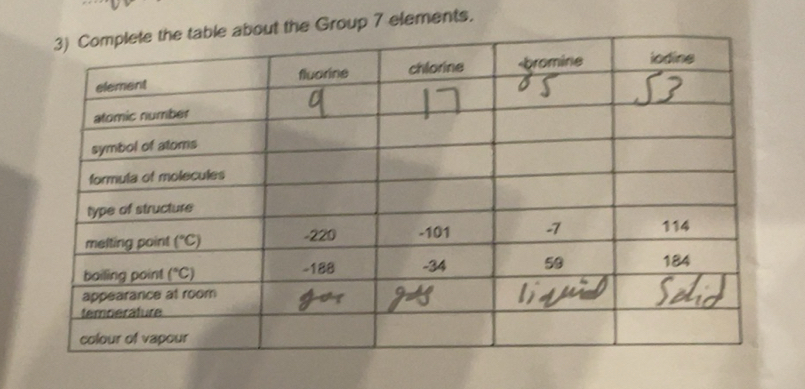 3) Complete the table about the Group 7 elements.
element fluorine chlorine bromine iodine
atomic number 9 17 53
symbol of atoms
formula of molecules
type of structure
melting point (°C) -220 -101 -7 114
boiling point (°C) -188 -34 59 184
appearance at room temperature gas gas liquid Solid
colour of vapour